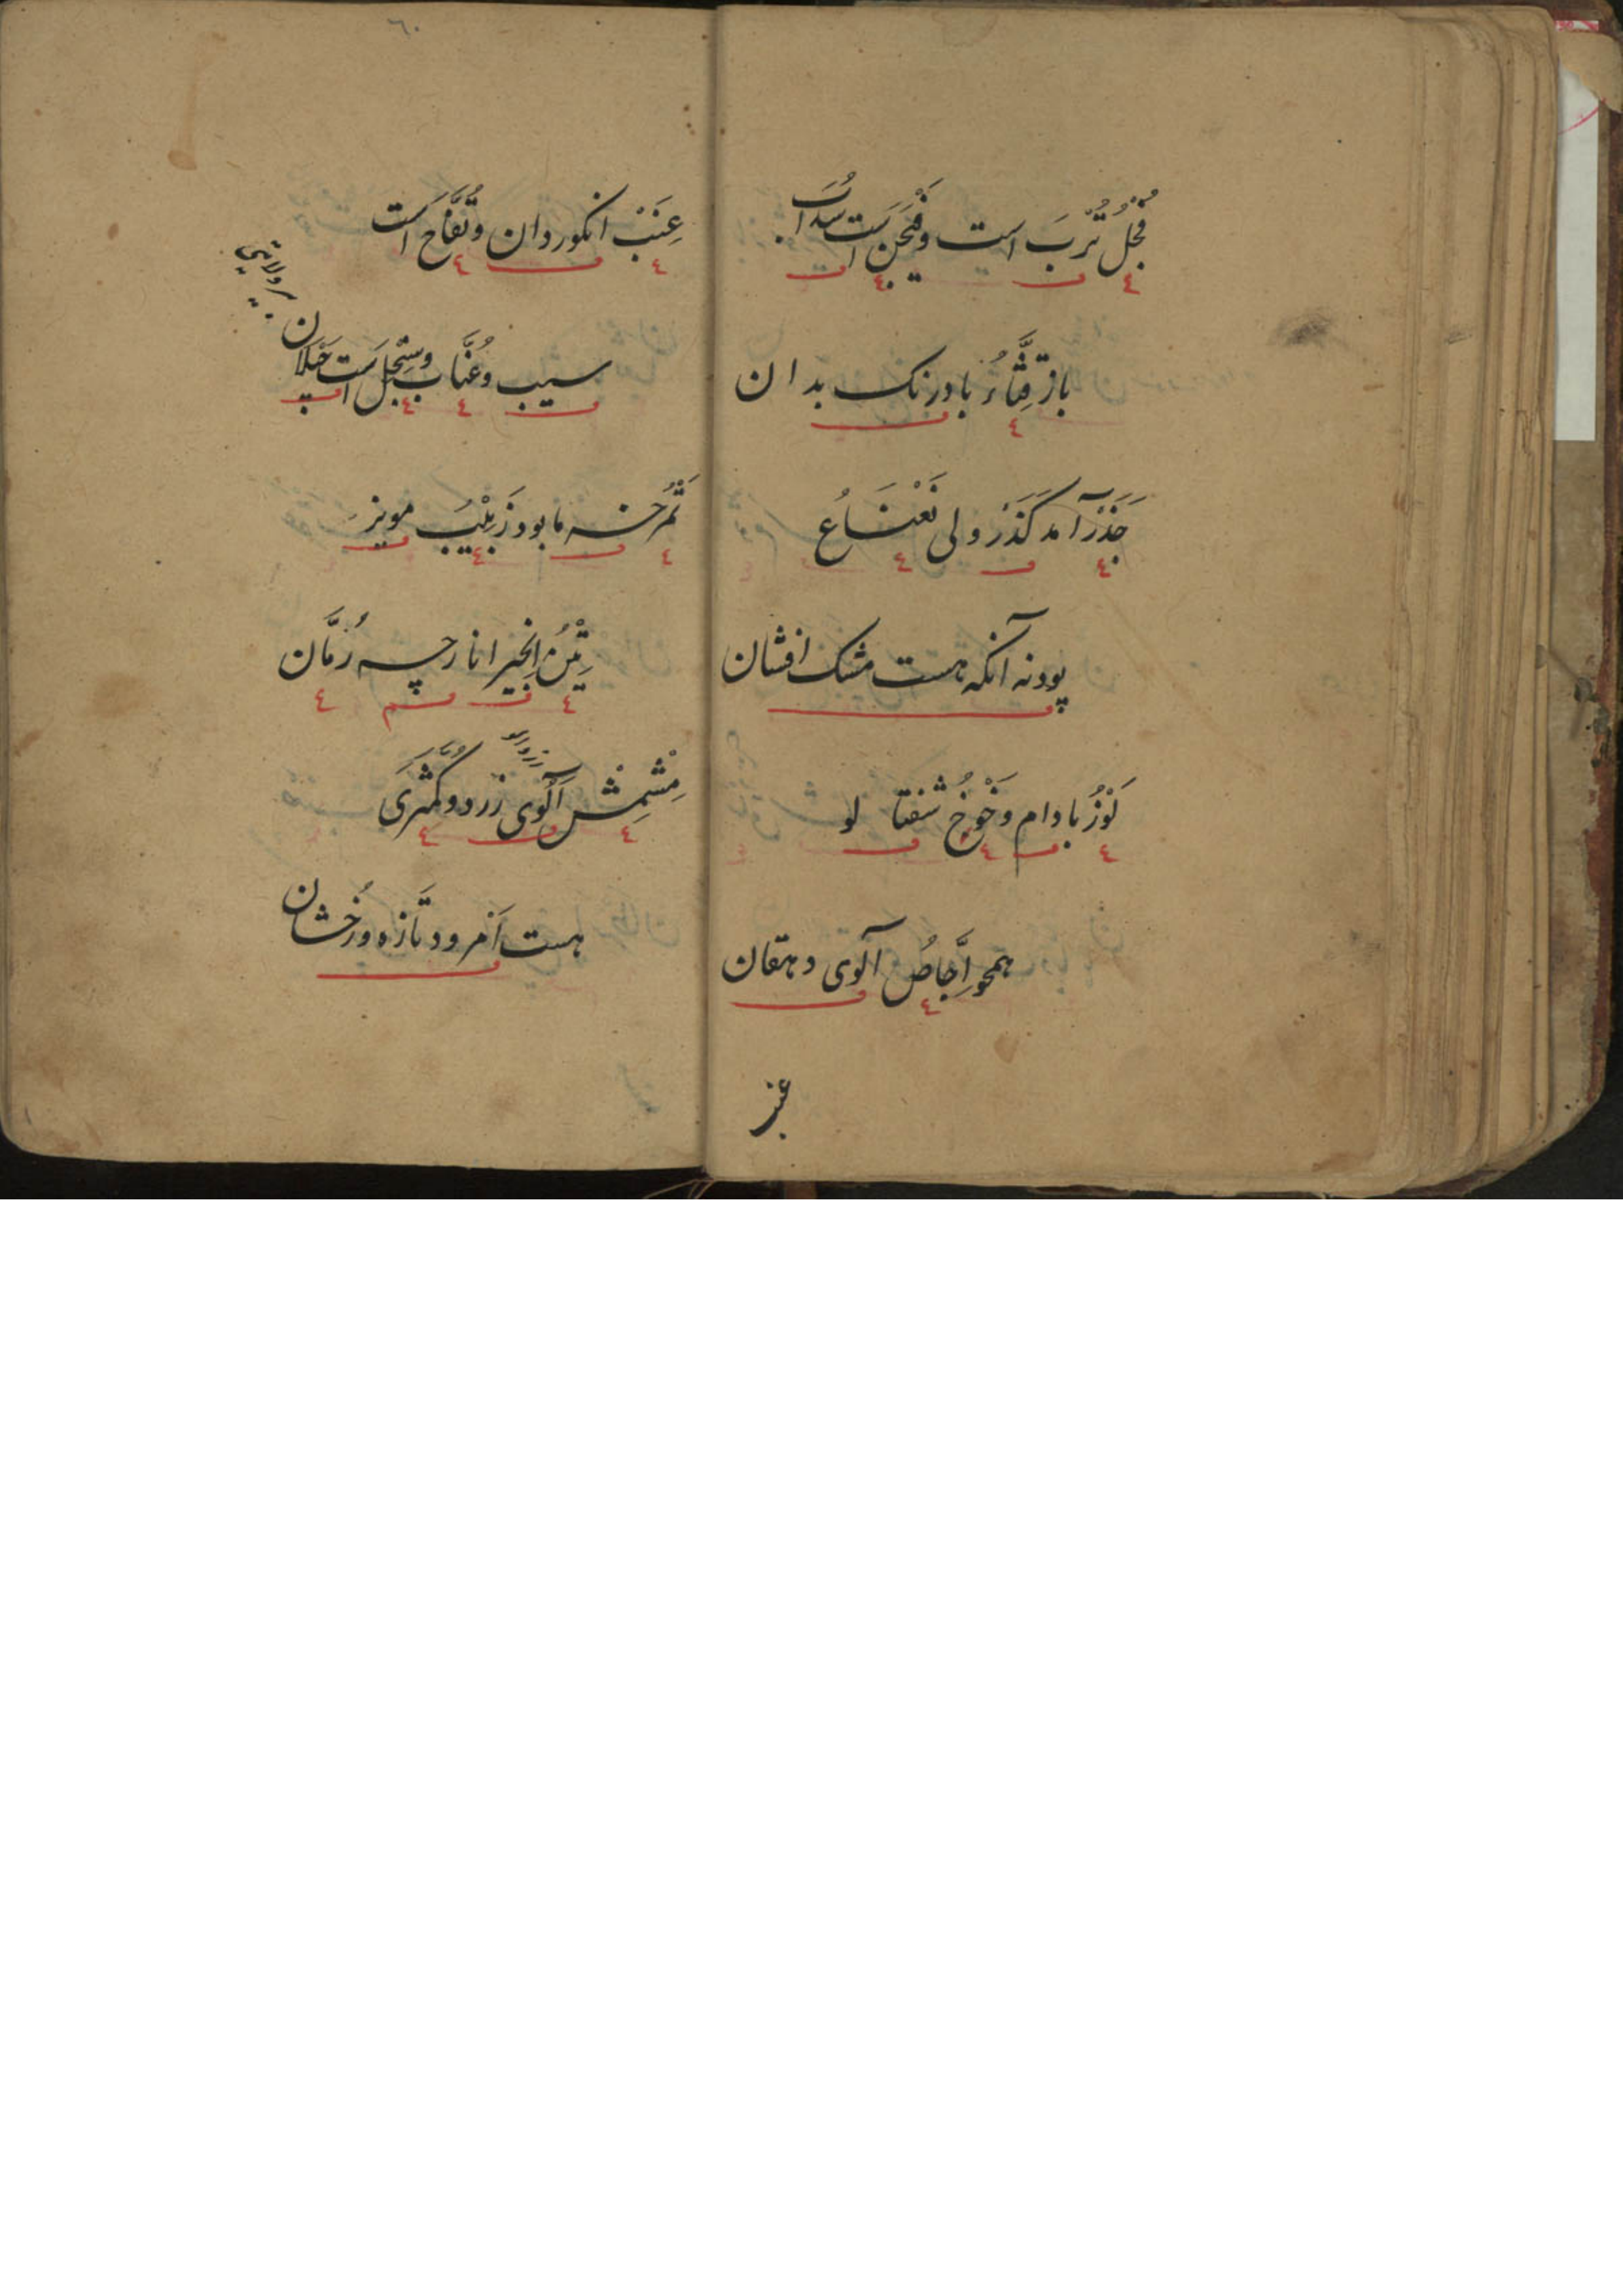 فُجْلُ تُرُب است و فَیْجَن است سُداب
باز قِثَّاءُ بادرنک بدان
جَزَر آمد کَذَر ولی نَعْنَاعُ
پودنه آنکه هست مشک افشان
لَوْزُ بادام و خَوْخُ شفتا لو
همچو اِجَّاصُ آلوی دهقان
عنب
٦٠
عِنَبْ انکور دان و تُفَّاح است
سیب و عُنَّاب و سِنْجِل است جَیلان
تَمْرُ خرما بود زَبِیْبُ مویز
تِیْنُ انجیر انار چه رُمَّان
مِشْمِشْ آلوی زرد و کُمَّثْرَی
هست اَمْرود تازه و رُخشان